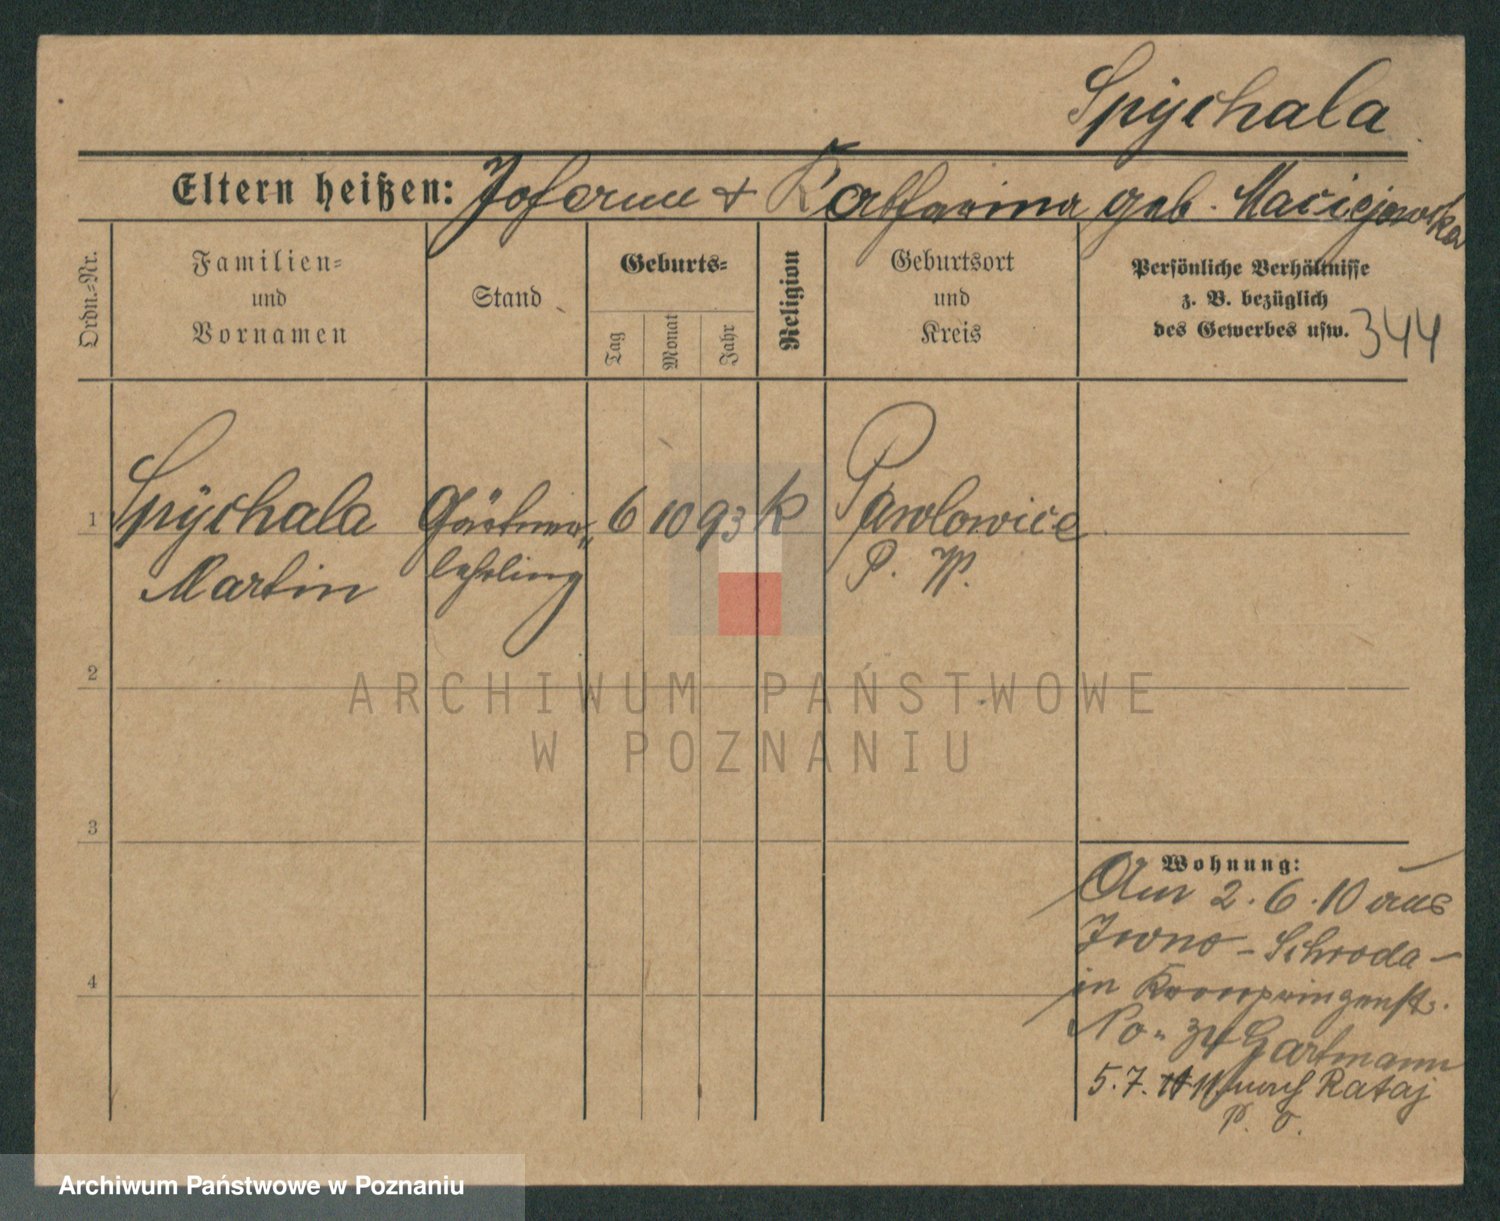 Spÿchala
Eltern heißen: Johann + Katharina geb. Maciejewska
Ordn.-Nr.
Familien-
und
Vornamen
Stand
Geburts-
Tag
Monat
Jahr
Religion
Geburtsort
und
Kreis
Persönliche Verhältnisse
z. B. bezüglich
des Gewerbes usw.
344
1 Spÿchala Gärtner- 6 10 93 k Pawlowice
Martin lehrling P. W.
2
3
4
Wohnung:
Am 2.6.10 aus
Iwno - Schroda -
in Kronprinzenstr.
No - zu Hartmann
5.7. 11 nach Rataj
P. O.
ARCHIWUM PAŃSTWOWE
W POZNANIU
Archiwum Państwowe w Poznaniu